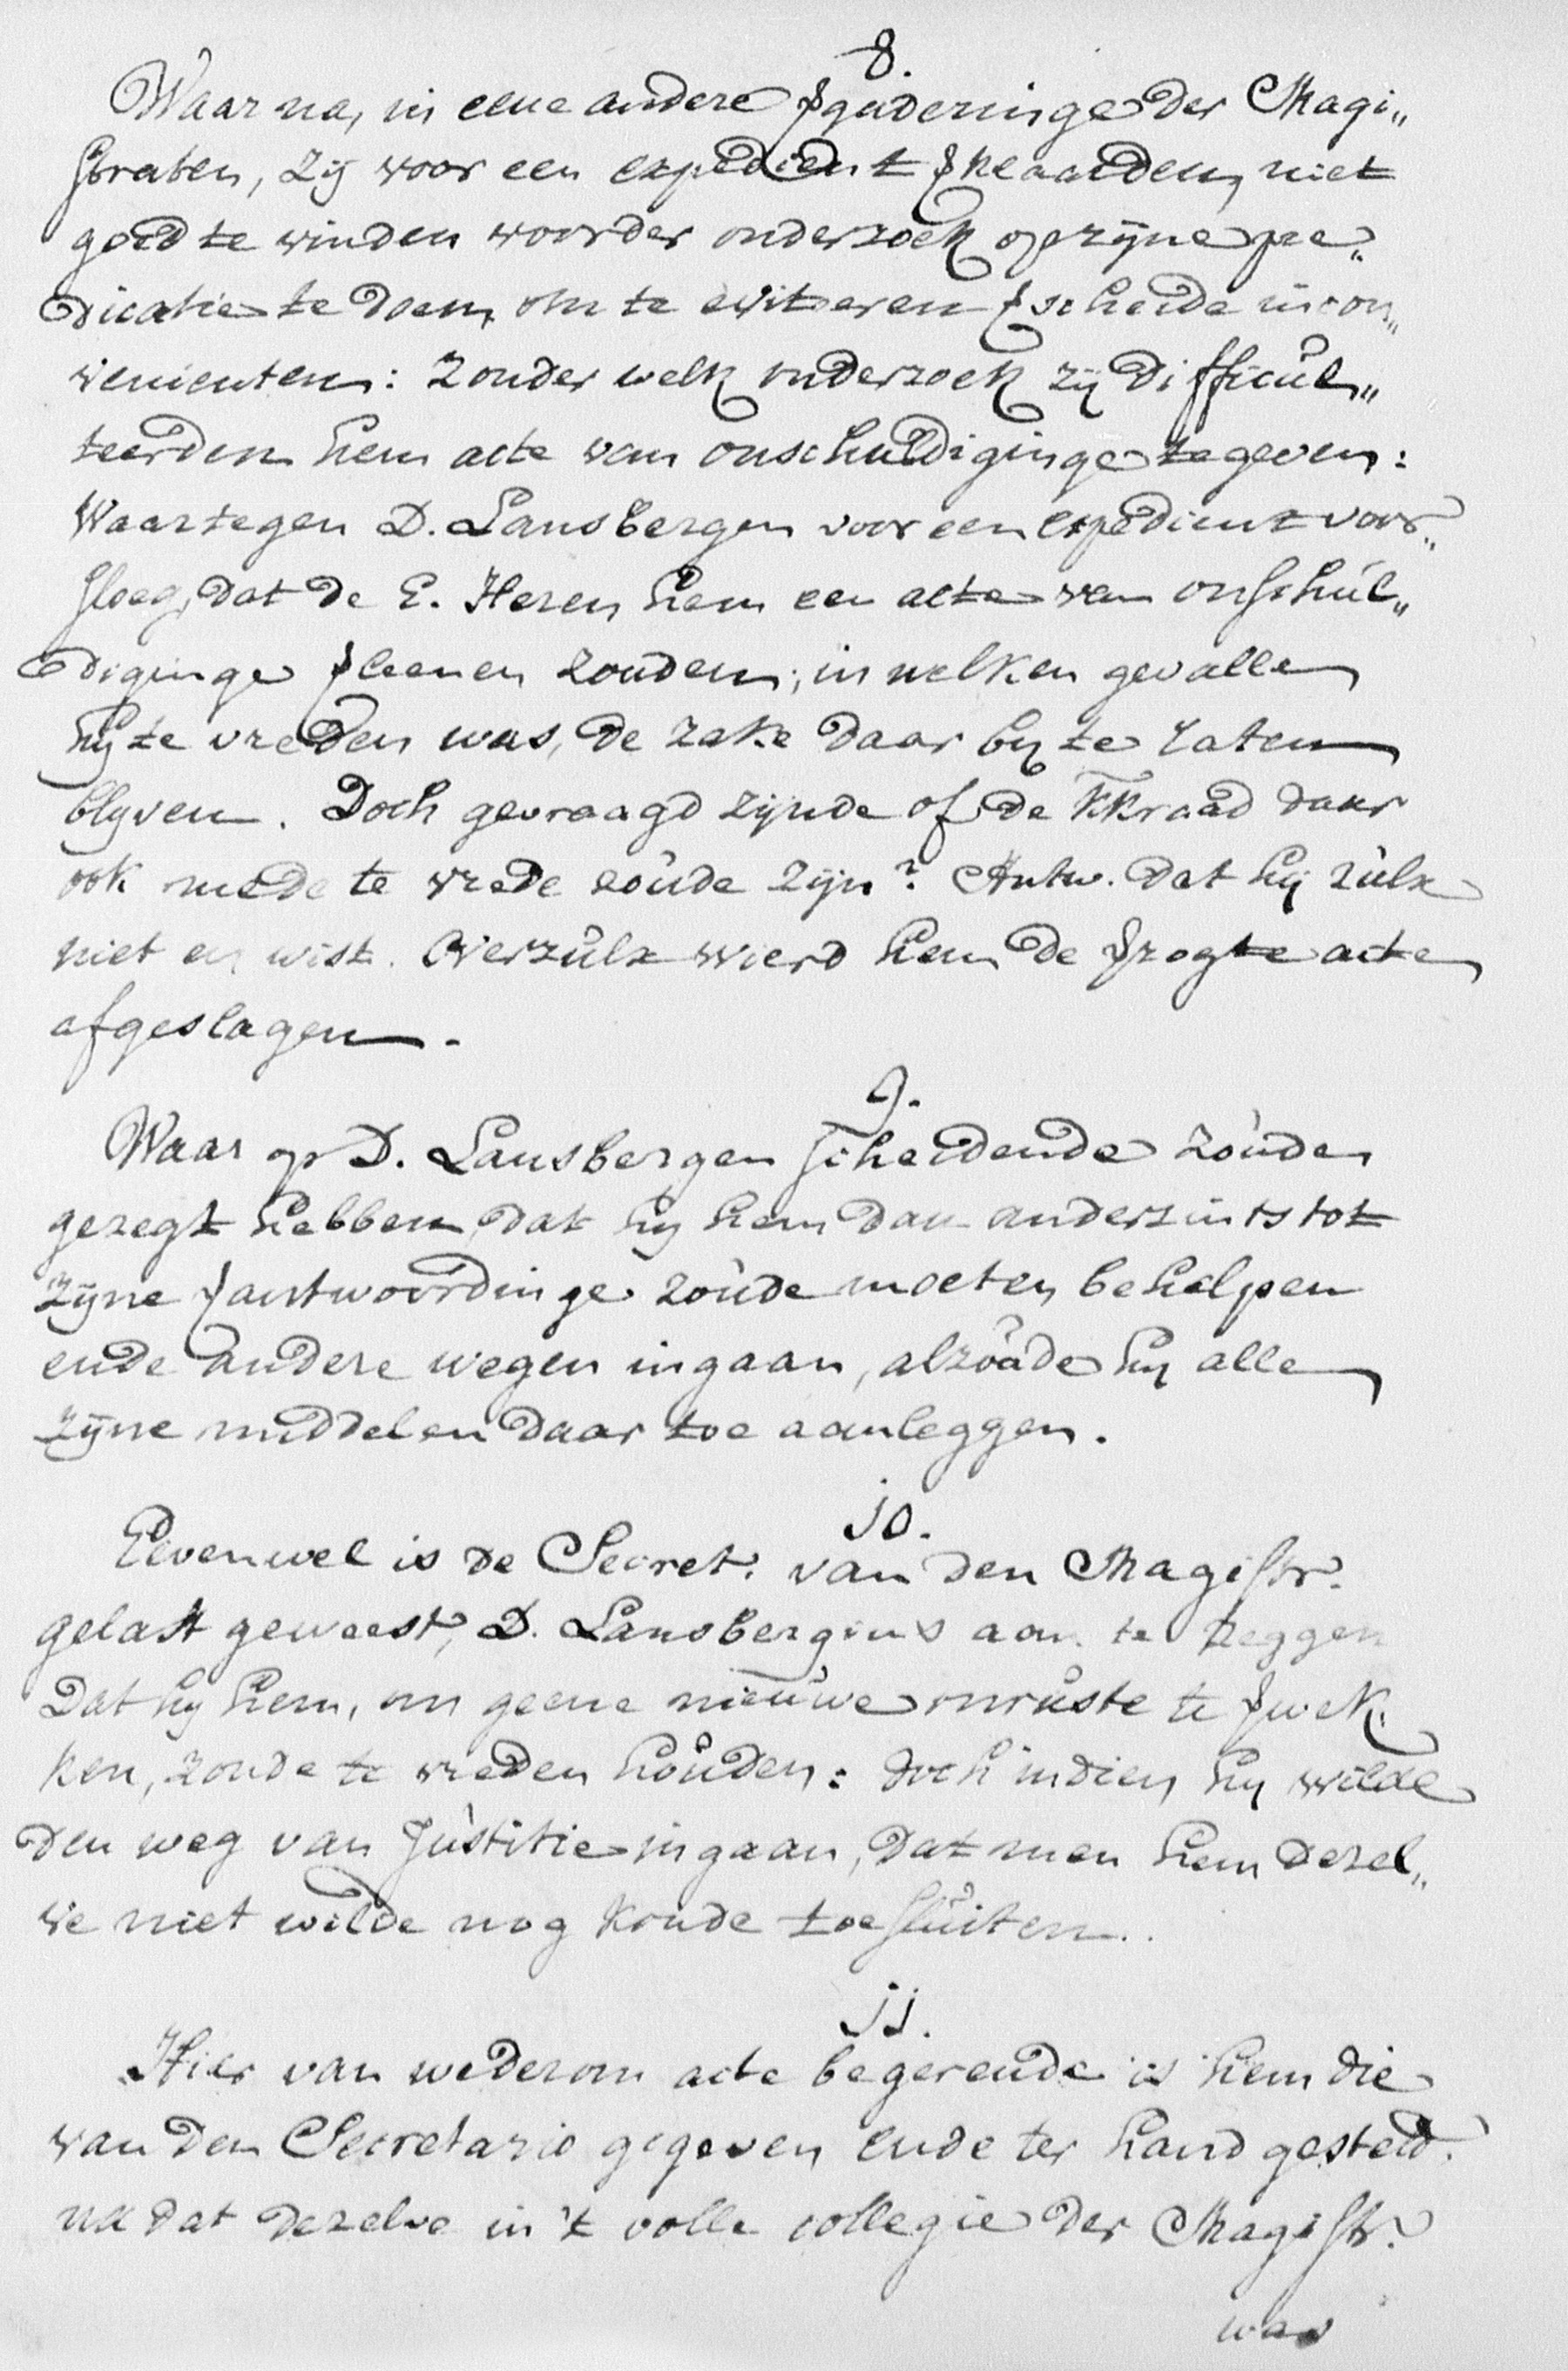 8.
Waar na, in eene andere ꝟgaderinge der Magi„
straten, zij voor een expedient ꝟklaarden, niet
goed te vinden voorder onderzoek op zijne pre„
dicatie te doen, om te eviteren ꝟscheide incon„
venienten: Zonder welk onderzoek zij difficul„
teerden hem acte van onschuldiginge te geven:
Waartegen D. Lansbergen voor een expedient voor„
sloeg, dat de E. Heren hem een acte van onschul„
diginge ꝟleenen zouden; in welken gevalle
hij te vreden was, de zake daar bij te laten
blyven. Doch gevraagd zijnde of de KKraad daar
ook mede te vrede zoude zijn? Antw. dat hij zulx
niet en wist. Overzulx wierd hem de ꝟzogte acte
afgeslagen.
9.
Waar op D. Lansbergen scheidende zoude
gezegt hebben, dat hij hem dan anderzints tot
zijne ꝟantwoordinge zoude moeten behelpen
ende andere wegen ingaan, alzoude hij alle
zijne middelen daar toe aanleggen.
10.
Eevenwel is de Secret. van den Magistr.
gelast geweest, D. Lansbergius aan te zeggen
dat hij hem, om geene nieuwe onruste te ꝟwek„
ken, zoude te vreden houden: doch indien hij wilde
den weg van Justitie ingaan, dat men hem dezel„
ve niet wilde nog konde toesluiten.
11.
Hier van wederom acte begerende is hem die
van den Secretario gegeven ende ter hand gesteld.
na dat dezelve in 't volle collegie der Magistr.
was